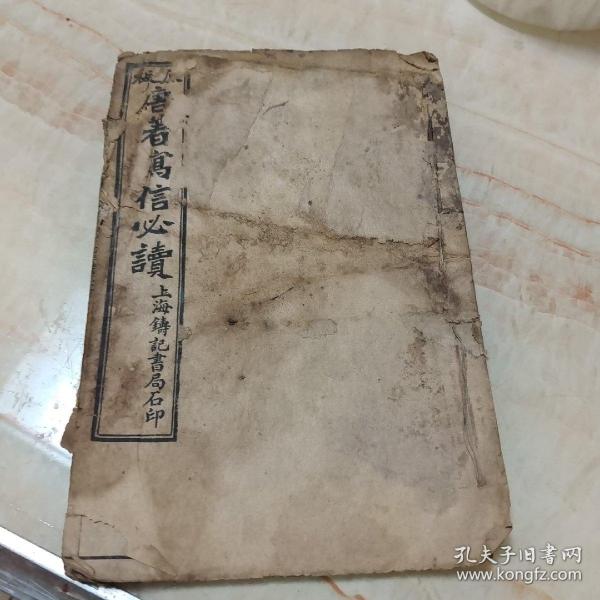 唐著寫信必讀
上海鑄記書局石印
孔夫子旧书网
www.kongfz.com